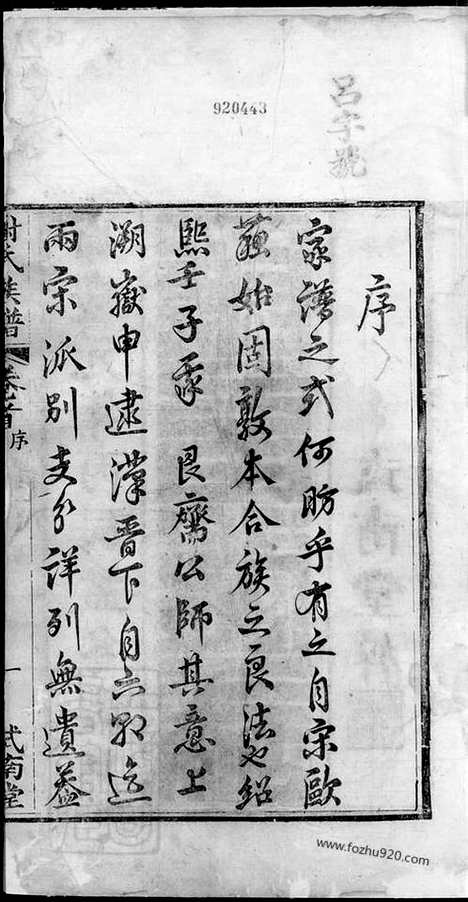 920443
呂字號
序
家譜之式何昉乎有之自宋歐
蘇始固敦本合族之良法也紹
熙壬子我 艮齋公師其意上
溯嶽申逮漢晉下自六朝迄
兩宗派別支分詳列無遺蓋
謝氏族譜 卷首 序 一 式南堂
www.fozhu920.com